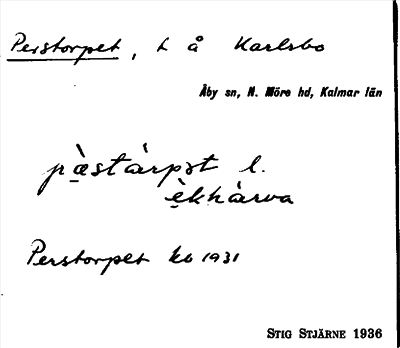 Perstorpet, t å Karlsbo
Åby sn, N. Möre hd, Kalmar län
pæ̀stàrpət l.
èkhàrva
Perstorpet kb 1931
STIG STJÄRNE 1936